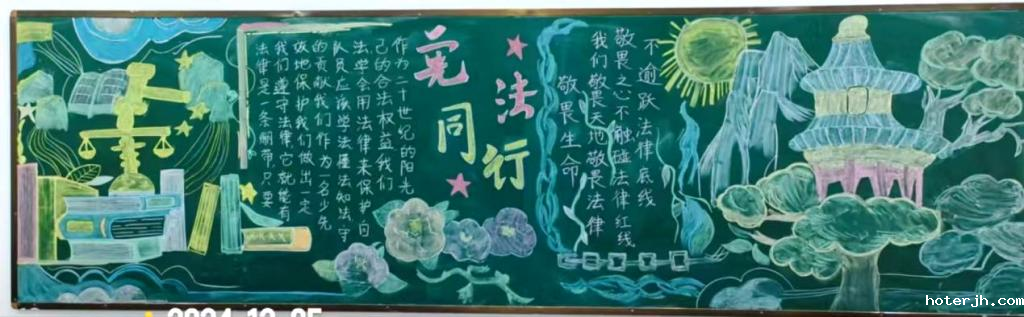 法律是一条丽带只要
我们遵守法律它就能有
效地保护我们做出一定
的贡献我们作为一名少先
队员应该学法懂法知法守
法学会用法律来保护自
己的合法权益我们
作为二十世纪的阳光
宪法同行
敬畏生命
我们敬畏天地敬畏法律
敬畏之心不触碰法律红线
不逾跃法律底线
hoterjh.com